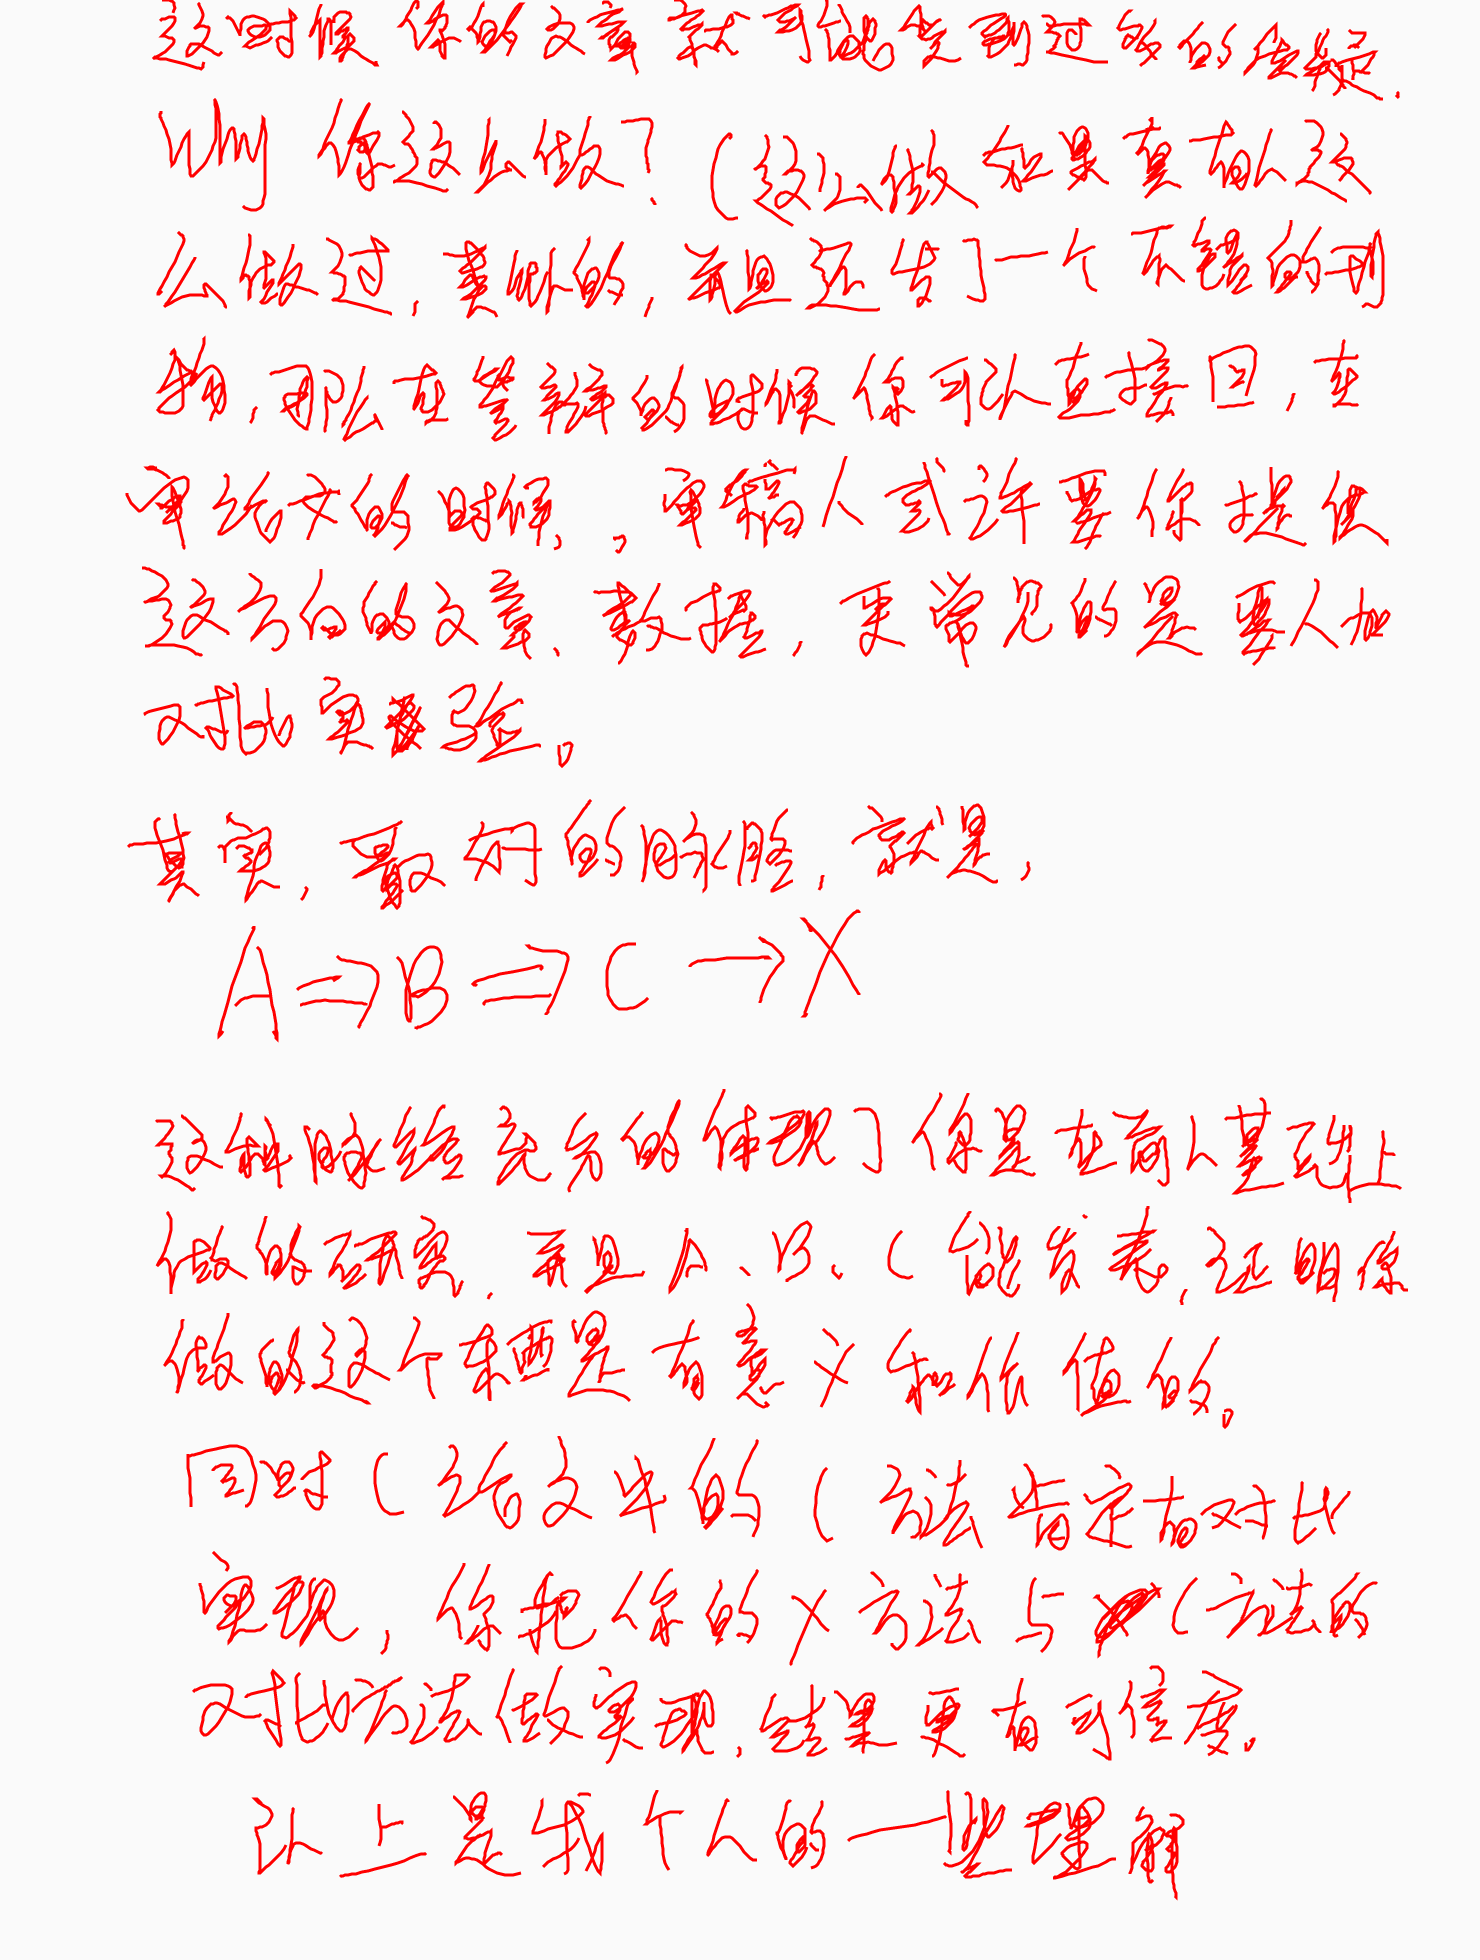 这时候你的文章就可能受到过多的质疑.
Why 你这么做? (这么做如果真有人这
么做过,类似的,并且还发了一个不错的刊
物,那么在答辩的时候你可以直接回,在
审论文的时候,。审稿人或许要你提供
这方向的文章、数据,更常见的是要人加
对比实验。
其实,最好的脉络,就是,
A⇒B⇒C→X
这种脉络充分的体现了你是在前人基础上
做的研究,并且A、B、C能发表,证明你
做的这个东西是有意义和价值的。
同时C论文中的C方法肯定有对比
实现,你把你的X方法与C方法的
对比方法做实现,结果更有可信度。
以上是我个人的一些理解